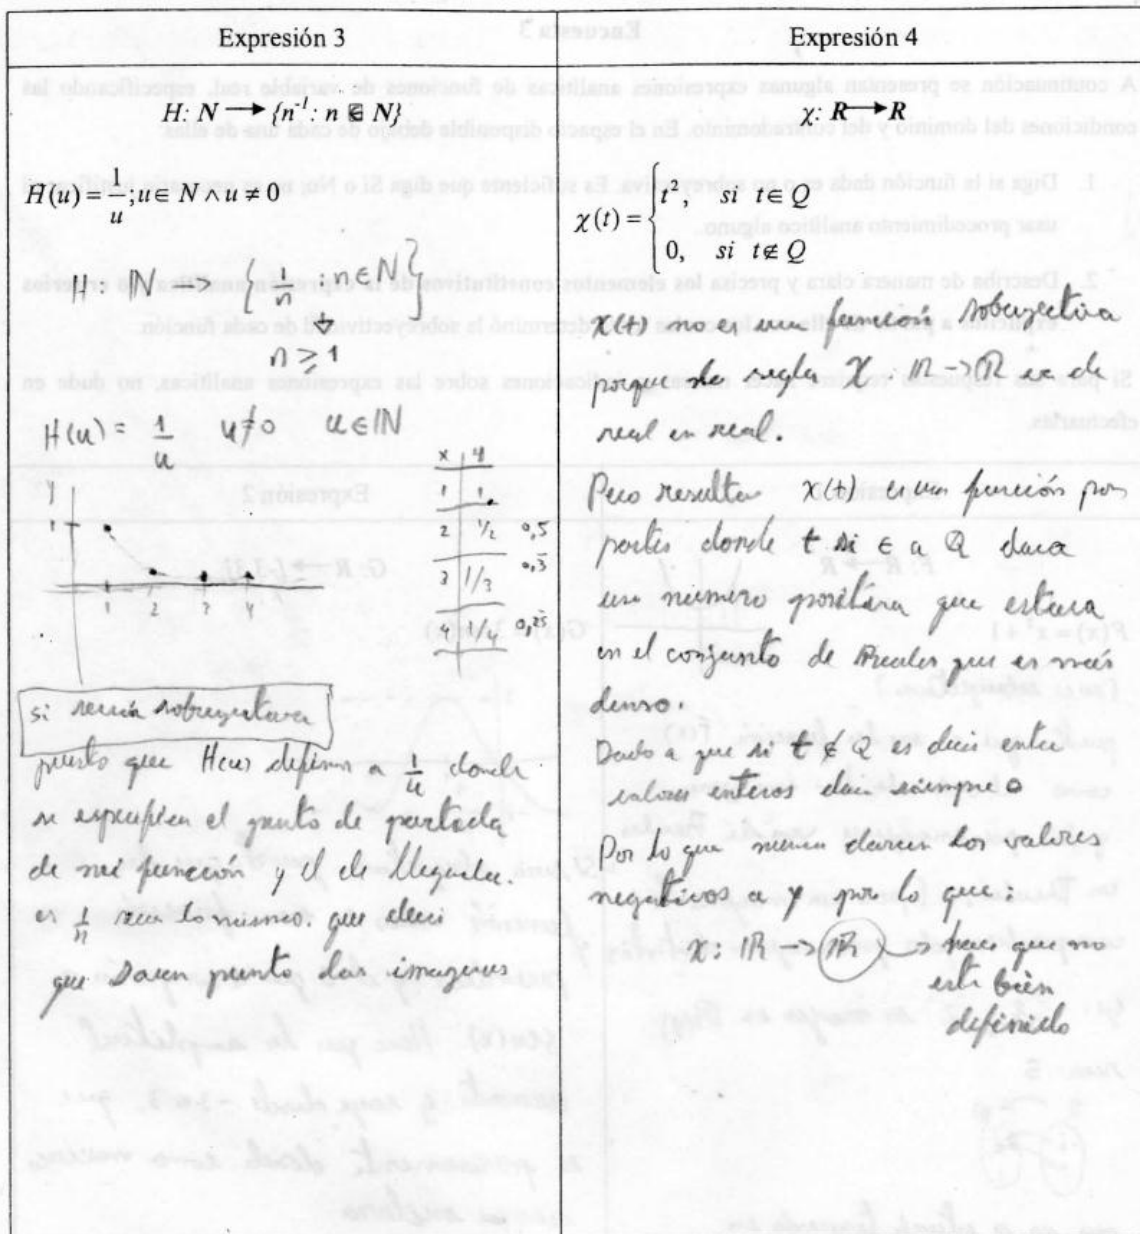 Expresión 3
H: N → {n⁻¹: n ∈ N}
H(u) = 1/u; u ∈ N ∧ u ≠ 0
H: ℕ → { 1/n : n ∈ ℕ }
↓
n ≥ 1
H(u) = 1/u u ≠ 0 u ∈ ℕ
x | y
1 | 1
2 | 1/2 0,5
3 | 1/3 0,3
4 | 1/4 0,25
y
1
1 2 3 4
si seria sobreyectiva
puesto que H(u) define a 1/u donde
se especifica el punto de partida
de mi función y el de llegada.
es 1/n sea lo mismo. que decir
que punto las imagenes
Expresión 4
χ: R → R
χ(t) = { t², si t ∈ Q
0, si t ∉ Q
χ(t) no es una función sobreyectiva
porque la regla χ: ℝ → ℝ es de
real en real.
Pero resulta χ(t) es una función por
partes donde t si ∈ a Q dara
un número positivo que estara
en el conjunto de Reales que es más
denso.
Dado a que si t ∉ Q es decir entre
valores enteros dan siempre 0
Por lo que nunca daran los valores
negativos a y por lo que:
χ: ℝ → ℝ → hace que no
este bien
definido